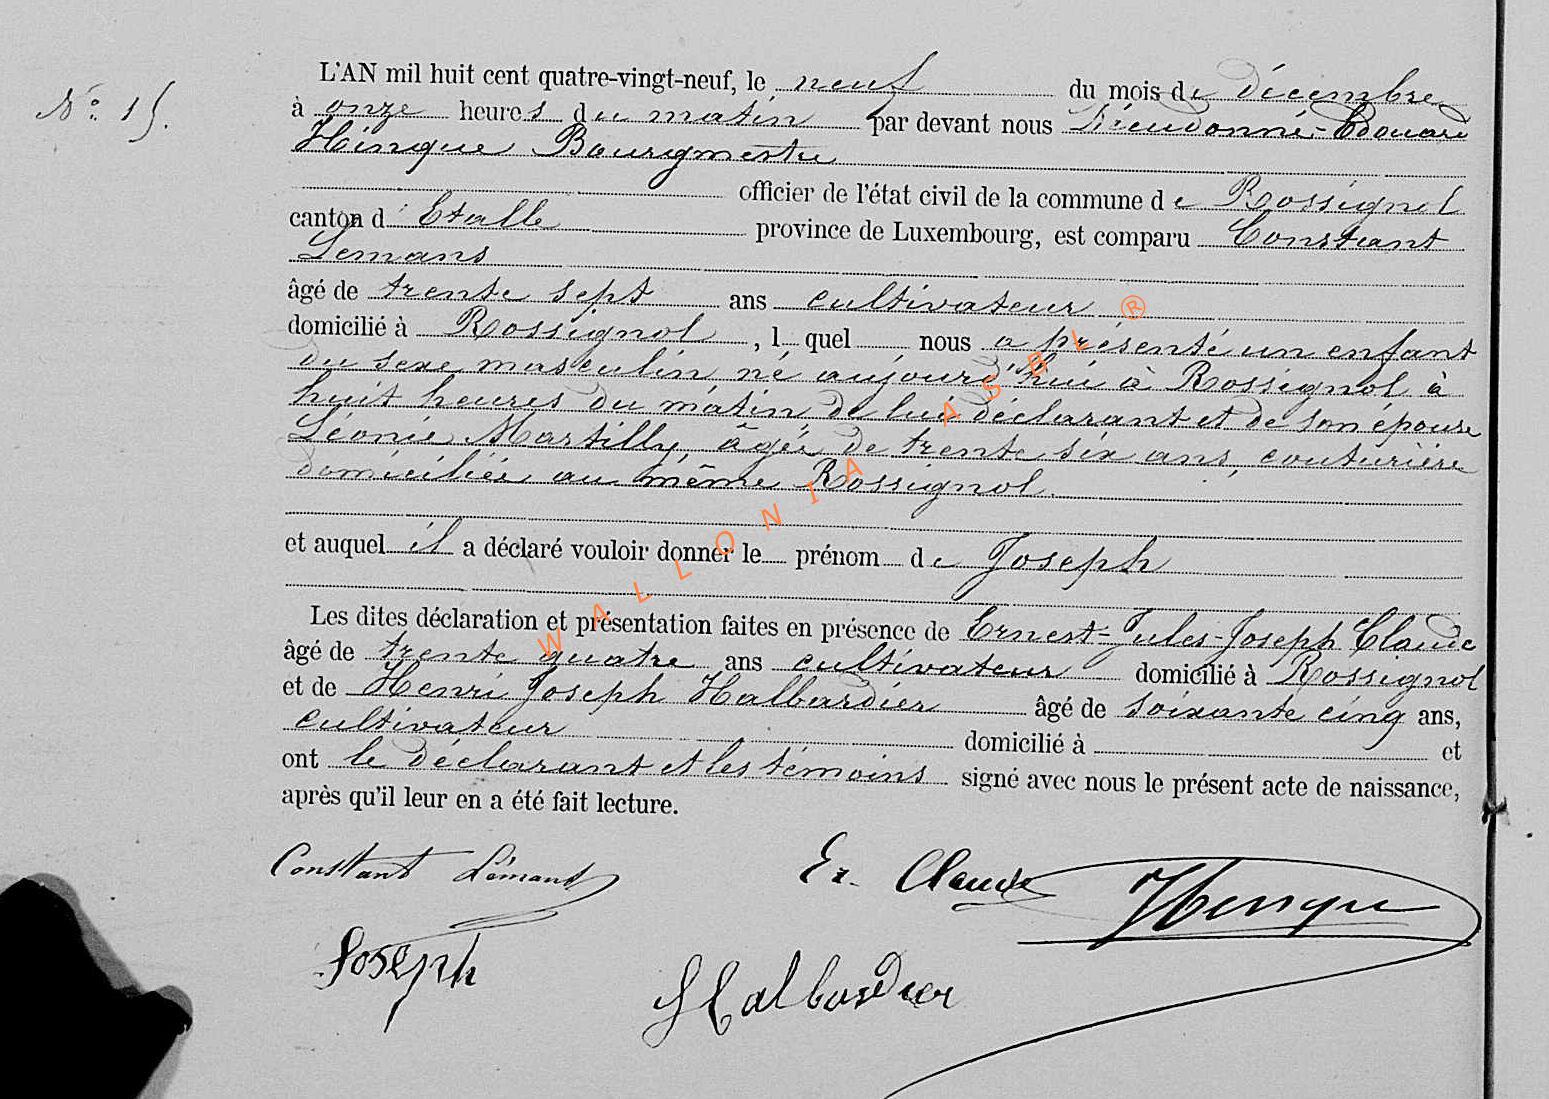 N° 15.
L'AN mil huit cent quatre-vingt-neuf, le neuf du mois de décembre
à onze heures du matin par devant nous Dieudonné-Edouard
Hinque Bourgmestre
officier de l'état civil de la commune de Rossignol
canton d'Etalle province de Luxembourg, est comparu Constant
Lemans
âgé de trente sept ans cultivateur
domicilié à Rossignol, l quel nous a présenté un enfant
du sexe masculin né aujourd'hui à Rossignol à
huit heures du matin, de lui déclarant et de son épouse
Léonie Martilly, âgée de trente six ans, couturière
domiciliée au même Rossignol.
et auquel il a déclaré vouloir donner le prénom de Joseph
Les dites déclaration et présentation faites en présence de Ernest-Jules-Joseph Claude
âgé de trente quatre ans cultivateur domicilié à Rossignol
et de Henri Joseph Halbardier âgé de soixante cinq ans,
cultivateur domicilié à et
ont le déclarant et les témoins signé avec nous le présent acte de naissance,
après qu'il leur en a été fait lecture.
Constant Lémans Er. Claude Hinque
Joseph Halbardier
WALLONIA ASBL ®